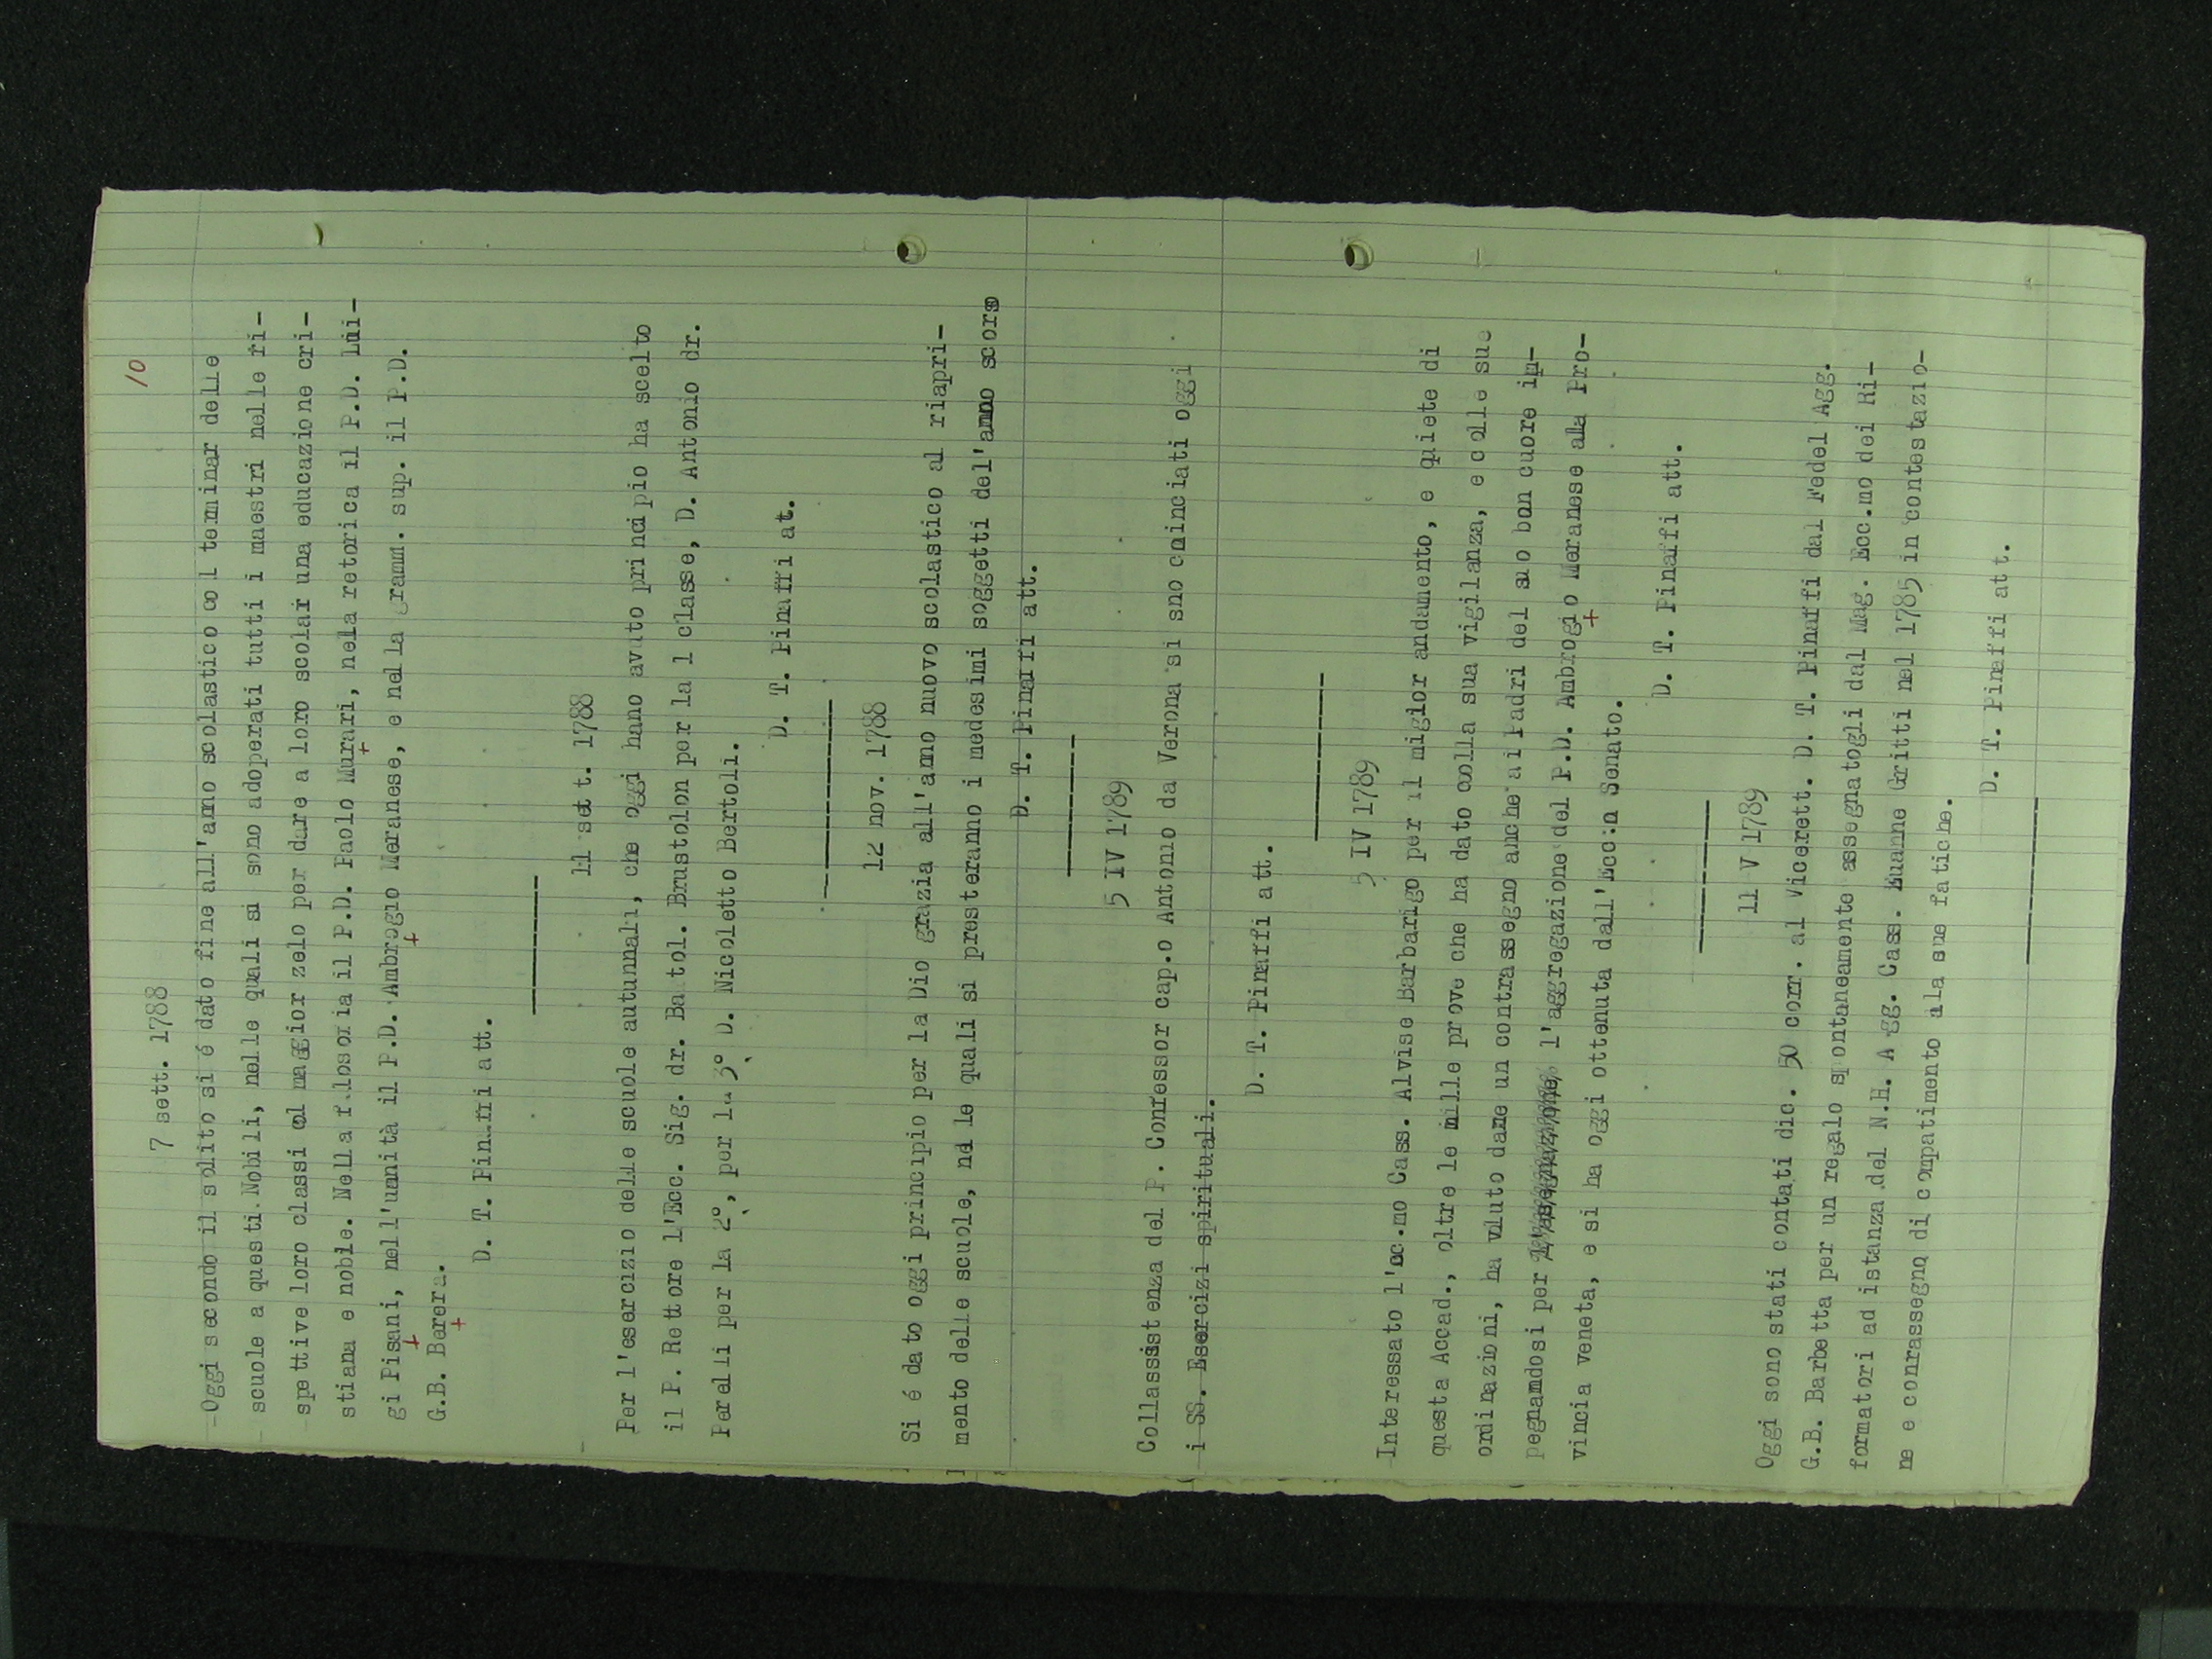 10
7 sett. 1788
Oggi secondo il solito si é dato fine all'anno scolastico col terminar delle
scuole a questi Nobili, nelle quali si sono adoperati tutti i maestri nelle ri-
spettive loro classi col maggior zelo per dare a loro scolari una educazione cri-
stiana e nobile. Nella filosofia il P.D. Paolo Murari, nela retorica il P.D. Lui-
gi Pisani, nell'umnità il P.D. Ambrogio Meranese, e nella gramm. sup. il P.D.
G.B. Berera.
D. T. Pinaffi att.
11 sett. 1788
Per l'esercizio delle scuole autunnali, che oggi hano avuto principio ha scelto
il P. Rettore l'Ecc. Sig. dr. Batol. Brustolon per la 1 classe, D. Antonio dr.
Peralli per la 2°, per la 3° D. Nicoletto Bertoli.
D. T. Pinaffi at.
12 nov. 1788
Si é dato oggi principio per la Dio grazia all'anno nuovo scolastico al riapri-
mento delle scuole, nele quali si presteranno i medesimi soggetti del'anno scorso
D. T. Pinaffi att.
5 IV 1789
Collassistenza del P. Confessor cap.o Antonio da Verona si sno coinciati oggi
i SS. Esercizi spirituali.
D. T. Pinaffi att.
5 IV 1789
Interessato l'ecc.mo Cass. Alvise Barbarigo per il migior andamento, e quiete di
questa Accad., oltre le mille prove che ha dato colla sua vigilanza, e colle sue
ordinazioni, ha voluto darne un contrassegno anche ai Padri del suo bon cuore im-
pegnamdosi per l'aggregazione del P.D. Ambrogio Meranese alla Pro-
vincia veneta, e si ha oggi ottenuta dall'Ecc:n Senato.
D. T. Pinaffi att.
11 V 1789
Oggi sono stati contati dic. 50 corr. al Vicerett. D. T. Pinaffi dal Fedel Agg.
G.B. Barbetta per un regalo spontaneamente assegnatogli dal Mag. Ecc.mo dei Ri-
formatori ad istanza del N.H. Agg. Cass. Zuanne Gritti nel 1785 in contestazio-
ne e conrassegno di compatimento ala sue fatiche.
D. T. Pinaffi att.